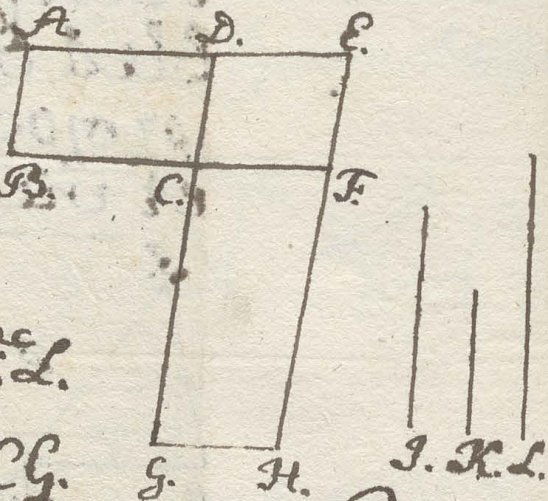 A. D. E.
B. C. F.
L.
CG.
G. H. I. K. L.